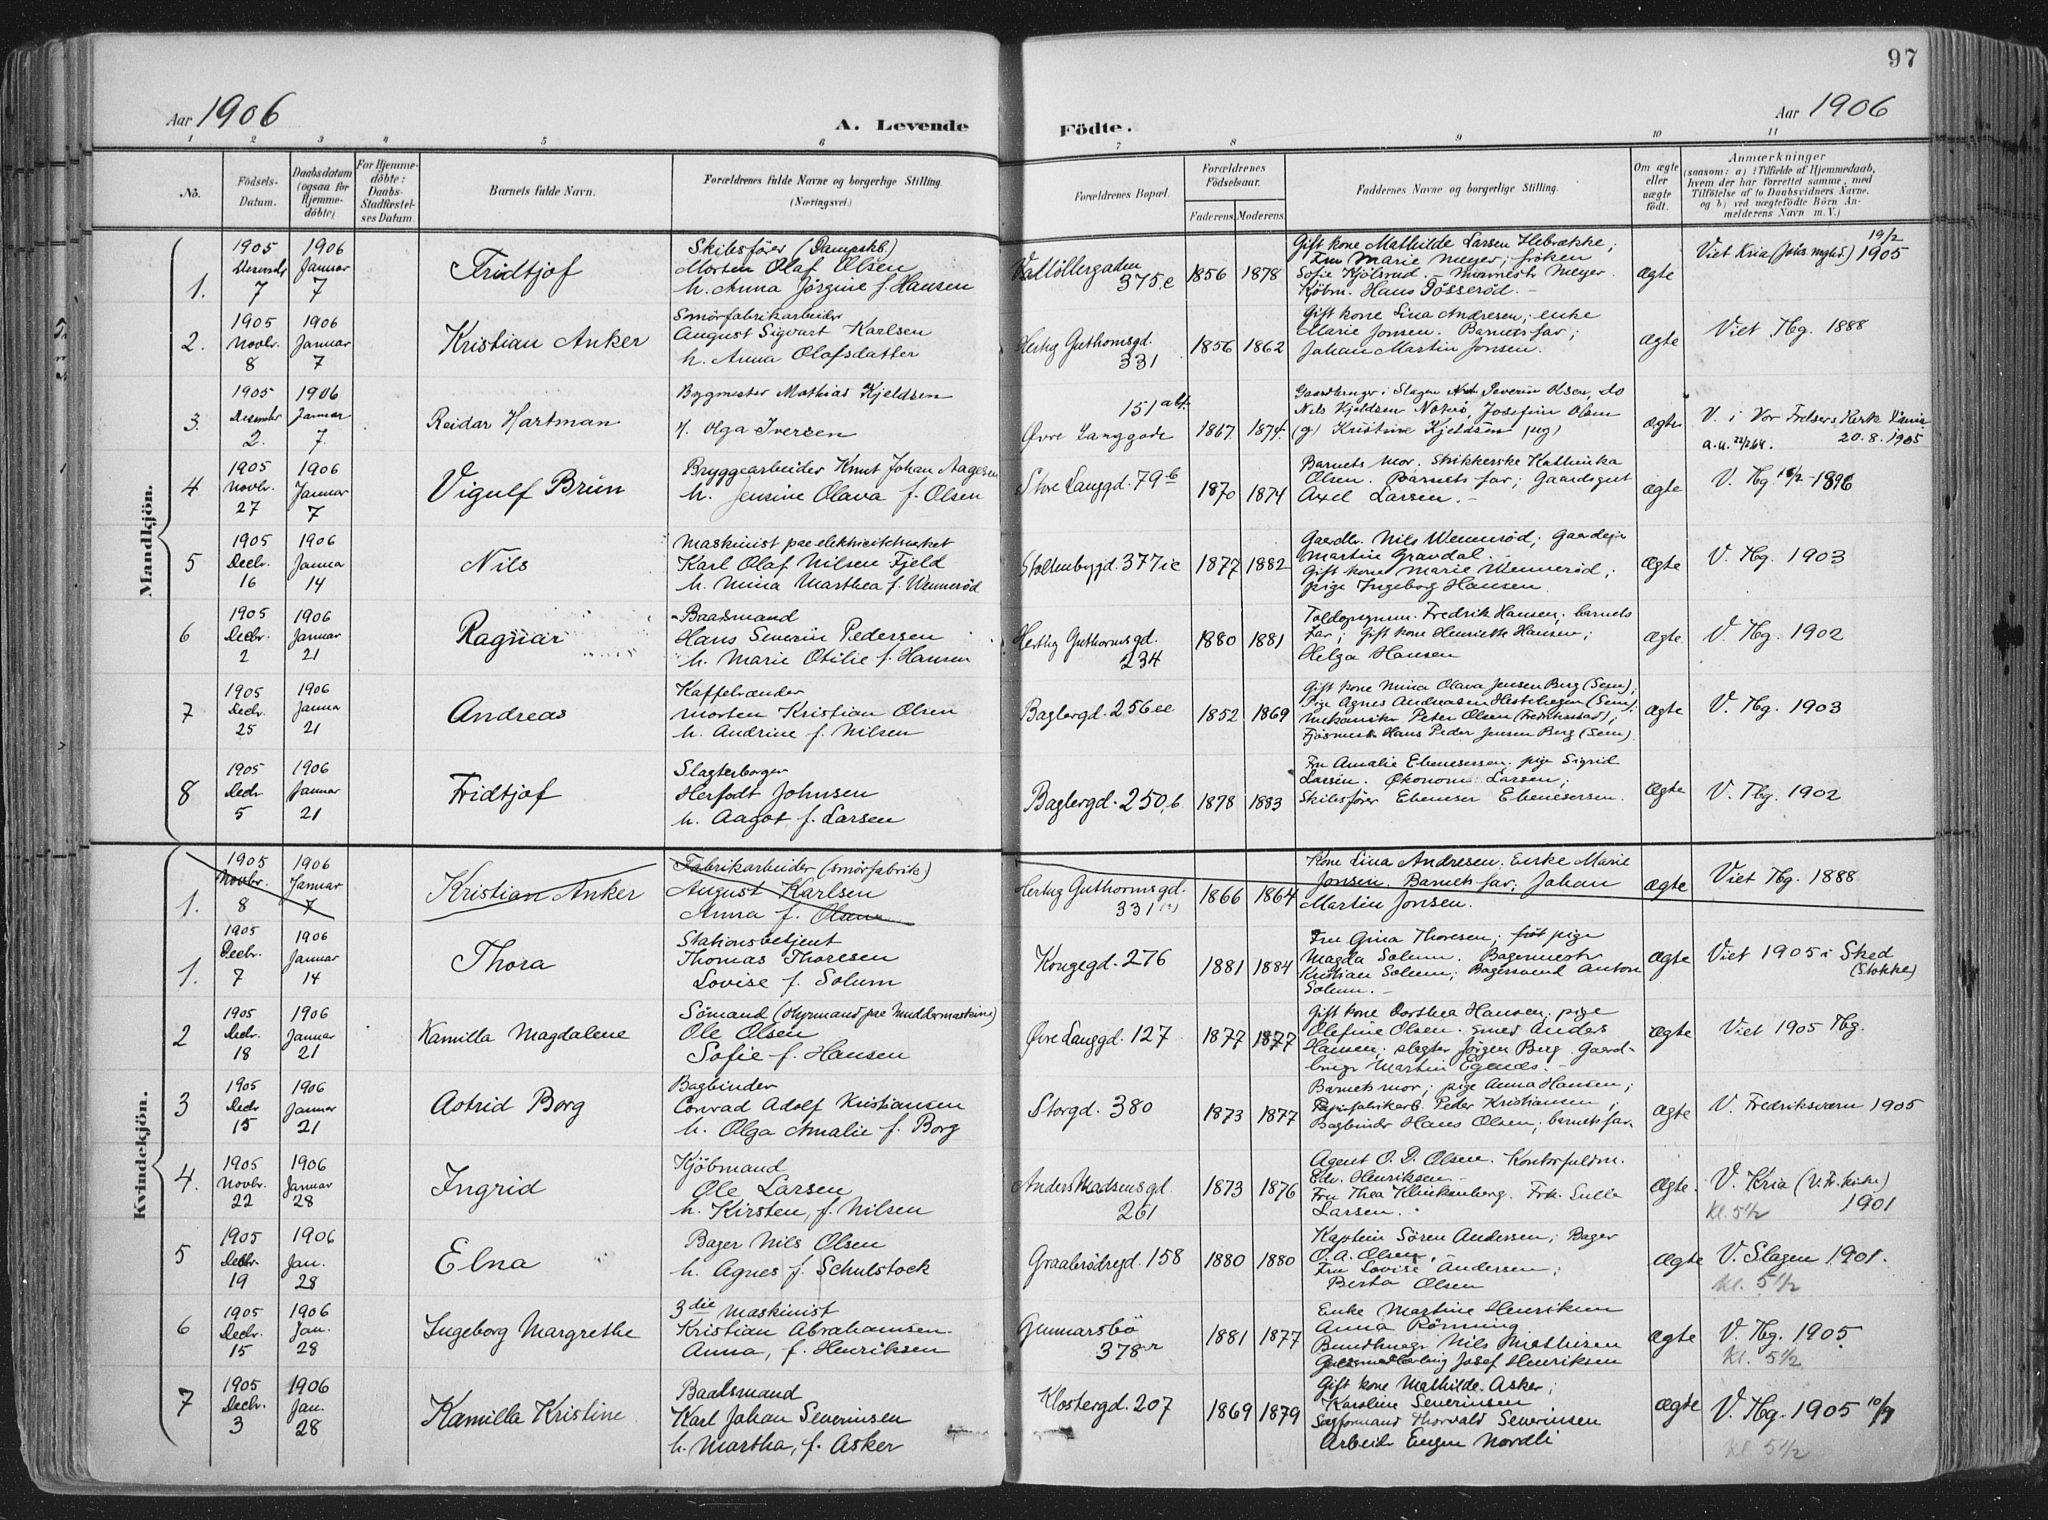 97
Aar 1906
A. Levende
Födte.
Aar 1906
1 2 3 4 5 6 7 8 9 10 11
No.
Födsels-
Datum.
Daabsdatum
(ogsaa for
Hjemme-
døbte)
For Hjemme-
döbte:
Daabs-
Stadfæstel-
ses Datum.
Barnets fulde Navn.
Forældrenes fulde Navne og borgerlige Stilling.
(Næringsvei.)
Forældrenes Bopæl.
Forældrenes
Födselsaar.
Faderens. Moderens.
Faddernes Navne og borgerlige Stilling.
Om ægte
eller
uægte
født.
Anmærkninger
(saasom: a) i Tilfælde af Hjemmedaab,
hvem der har forrettet samme, med
Tilföielse af to Daabsvidners Navne.
og b) ved uægtefödte Börn An-
melderens Navn m. V.)
Mandkjön.
1.
1905
7
1906
Januar
7
Fridtjof
Skibsfører (Dampskb.)
Morten Olaf Olsen
h. Anna Jørgine f. Hansen
375.c
1856 1878
Gift kone Mathilde Larsen Hebrække;
Fru Marie Meyer; frøken
Købm. Hans Gösserød.
ægte
19/2
Viet Kria 1905
2.
1905
Novbr.
8
1906
Januar
7
Kristian Anker
Smörfabrikarbeider
August Sigvart Karlsen
h. Anna Olafsdatter
Hertug Guthormsgd.
331
1856 1862
Gift kone Lina Andresen; enke
Marie Jonsen. Barnets far;
Johan Martin Jonsen.
ægte
Viet Tbg. 1888
3
1905
2.
1906
Januar
7.
Reidar Hartman
Bygmester Mathias Kjeldsen
Olga Iversen
151
Øvre Langgade
1867 1874.
Severin Olsen, do
Nils Kjeldsen Nøterö, Josefine Olsen
(g) Kristine Kjeldsen pig)
ægte
V. i Vor Frelsers Kirk
20.8.1905
4
1905
Novbr.
27
1906
Januar
7
Vigulf Brun
Bryggearbeider Knut Johan Aagesen
h. Jensine Olava f. Olsen
Store Langgd. 79 b
1870 1874
Barnets mor. Strikkerske Kathinka
Olsen. Barnets far; Gaardsgut
Axel Larsen.
ægte
V. Tbg. 1896
5
1905
Decbr.
16
1906
Januar
14
Nils
Maskinist paa elektricitetsverket
Karl Olaf Nilsen Fjeld
h. Mina Marthea f. Wennerød
Stoltenbgd. 377 i c
1877 1882
Gaardbr. Nils Wennerød; Gaardeier
Martin Gravdal.
Gift kone Marie Wennerød;
pige Ingeborg Hansen.
ægte
V. Tbg. 1903
6
1905
Decbr.
2
1906
Januar
21
Ragnar
Baadsmand
Hans Severin Pedersen
h. Marie Otilie f. Hansen
Hertug Guthormsgd.
234
1880 1881
Toldopsynsm. Fredrik Hansen; barnets
far; Gift kone Henriette Hansen;
Helga Hansen
ægte.
V. Tbg. 1902
7
1905
Decbr.
25
1906
Januar
21
Andreas
Kaffebrænder
Morten Kristian Olsen
h. Andrine f. Nilsen
Baglergd. 256
1852 1869
Gift kone Mina Olava Jensen Berg (Sem);
Pige Agnes Andreasen Hestehagen (Sem).
mekaniker Peter Olsen (Fredrikstad);
Hans Peder Jensen Berg (Sem).
ægte
V. Tbg. 1903
8
1905
Decbr
5
1906
Januar
21
Fridtjof
Slagterborger
Herfodt Johnsen
h. Aagot f. Larsen
Baglergd. 250.b
1878 1883
Fru Amalie Ebenesersen. pige Sigrid
Larsen. Økonom Larsen;
Skibsfører Ebeneser Ebenesersen.
ægte
V. Tbg. 1902
Kvindekjön.
1.
1905
Novbr.
8
1906
Januar
7
Kristian Anker
Fabrikarbeider (smörfabrik)
August Karlsen
Anna f. Olsen
Hertug Guthormsgd.
331
1866 1864
Kone Lina Andresen. Enke Marie
Jonsen. Barnets far; Johan
Martin Jonsen.
ægte
Viet Tbg. 1888
1.
1905
Decbr.
7
1906
Januar
14
Thora
Stationsbetjent
Thomas Thoresen
Lovise f. Solum
Kongegd. 276
1881 1884
Fru Gina Thoresen; pige
Magda Solum. Bagermester
Kristian Solum; Bagersvend Anton
Solum.
ægte
Viet 1905 i Sked
(Stokke)
2
1905
Decbr.
18
1906
Januar
21
Kamilla Magdalene
Sömand (Styrmand paa Muddermaskine)
Ole Olsen
Sofie f. Hansen
Øvre Langgd. 127
1877 1877
Gift kone Dorthea Hansen; pige
Olefine Olsen. smed Anders
Hansen; slagter Jörgen Berg. Gaard-
bruger Martin
ægte
Viet 1905 Tbg.
3
1905
Decbr
15
1906
Januar
21
Astrid Borg
Bogbinder
Conrad Adolf Kristiansen
h. Olga Amalie f. Borg
Storgd. 380
1873 1877
Barnets mor; pige Anna Hansen;
Peder Kristiansen;
Bogbinder Hans Olsen; barnets far.
ægte
V. Fredriksværn 1905
4.
1905
Novbr.
22
1906
Januar
28
Ingrid
Kjöbmand
Ole Larsen
h. Kirsten, f. Nilsen
Anders Madsensgd.
261
1873 1876
Agent O. D. Olsen. Kontorfuldm.
Edv. Henriksen
Fru Thea Klinkenberg. Frk. Lulle
Larsen.
ægte.
V. Kria (V. Fr. Kirke)
Kl. 5½ 1901
5
1905
Decbr.
19
1906
Jan.
28
Elna
Bager Nils Olsen
h. Agnes f. Schulstock
Graabrödregd. 158
1880 1880
Kaptein Sören Andersen; Bager
O. A. Olsen.
Fru Lovise Andersen;
Berta Olsen
ægte
V. Slagen 1901.
Kl. 5½
6
1905
Decbr.
15
1906
Jan.
28
Ingeborg Margrethe
3die Maskinist
Kristian Abrahamsen
Anna, f. Henriksen
Gunnarsbö
378
1881 1877
Enke Martine Henriksen
Anna Rönning
Nils Mathisen
Josef Henriksen
ægte
V. Tbg. 1905
Kl. 5½
7
1905
Decbr.
3
1906
Jan.
28
Kamilla Kristine
Baadsmand
Karl Johan Severinsen
h. Martha, f. Asker
Klostergd. 207
1869 1879
Gift kone Mathilde Asker;
Karoline Severinsen
Sagformand Thorvald Severinsen
Arbeider Eugen Nordli
ægte
V. Tbg. 1905 10/9
Kl. 5½